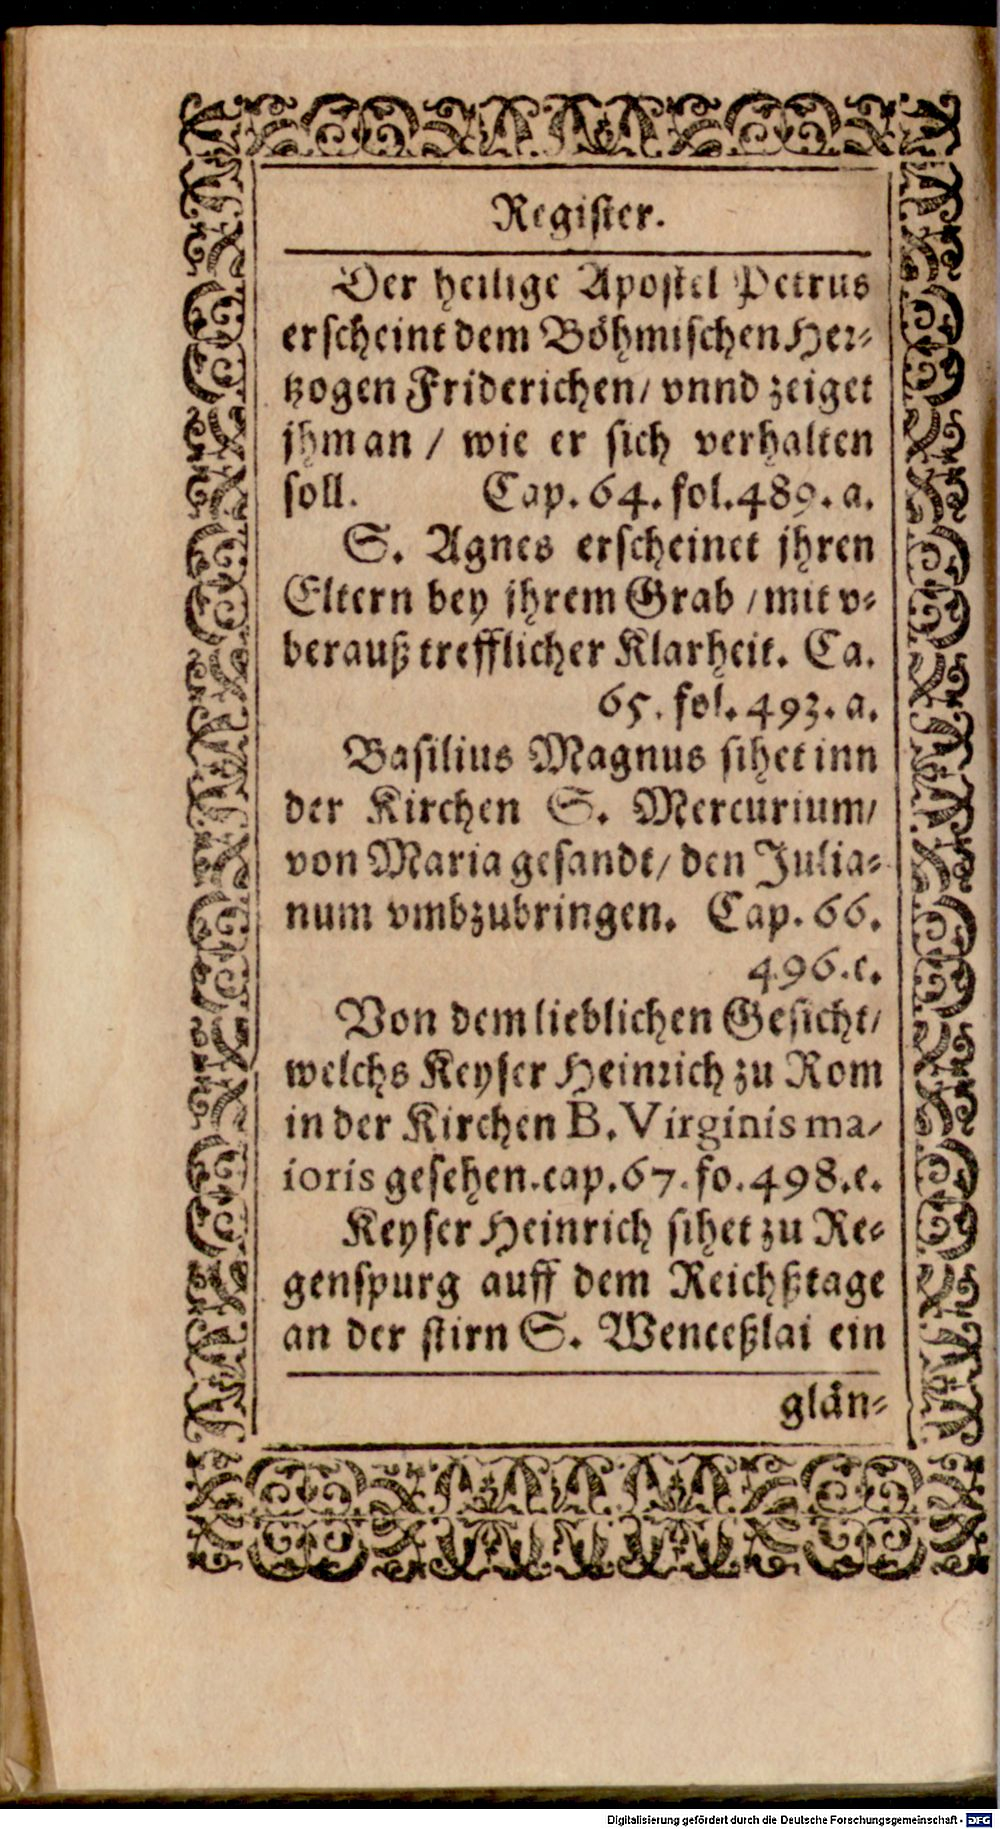 Register.
Der heilige Apostel Petrus
erscheint dem Böhmischen Her-
tzogen Friderichen/ vnnd zeiget
jhm an / wie er sich verhalten
soll. Cap. 64. fol. 489. a.
S. Agnes erscheinet jhren
Eltern bey jhrem Grab / mit v-
berauß trefflicher Klarheit. Ca.
65. fol. 493. a.
Basilius Magnus sihet inn
der Kirchen S. Mercurium/
von Maria gesandt/ den Julia-
num vmbzubringen. Cap. 66.
496. c.
Von dem lieblichen Gesicht/
welchs Keyser Heinrich zu Rom
in der Kirchen B. Virginis ma-
ioris gesehen. cap. 67. fo. 498. e.
Keyser Heinrich sihet zu Re-
genspurg auff dem Reichßtage
an der stirn S. Wenceßlai ein
glän-
Digitalisierung gefördert durch die Deutsche Forschungsgemeinschaft - DFG